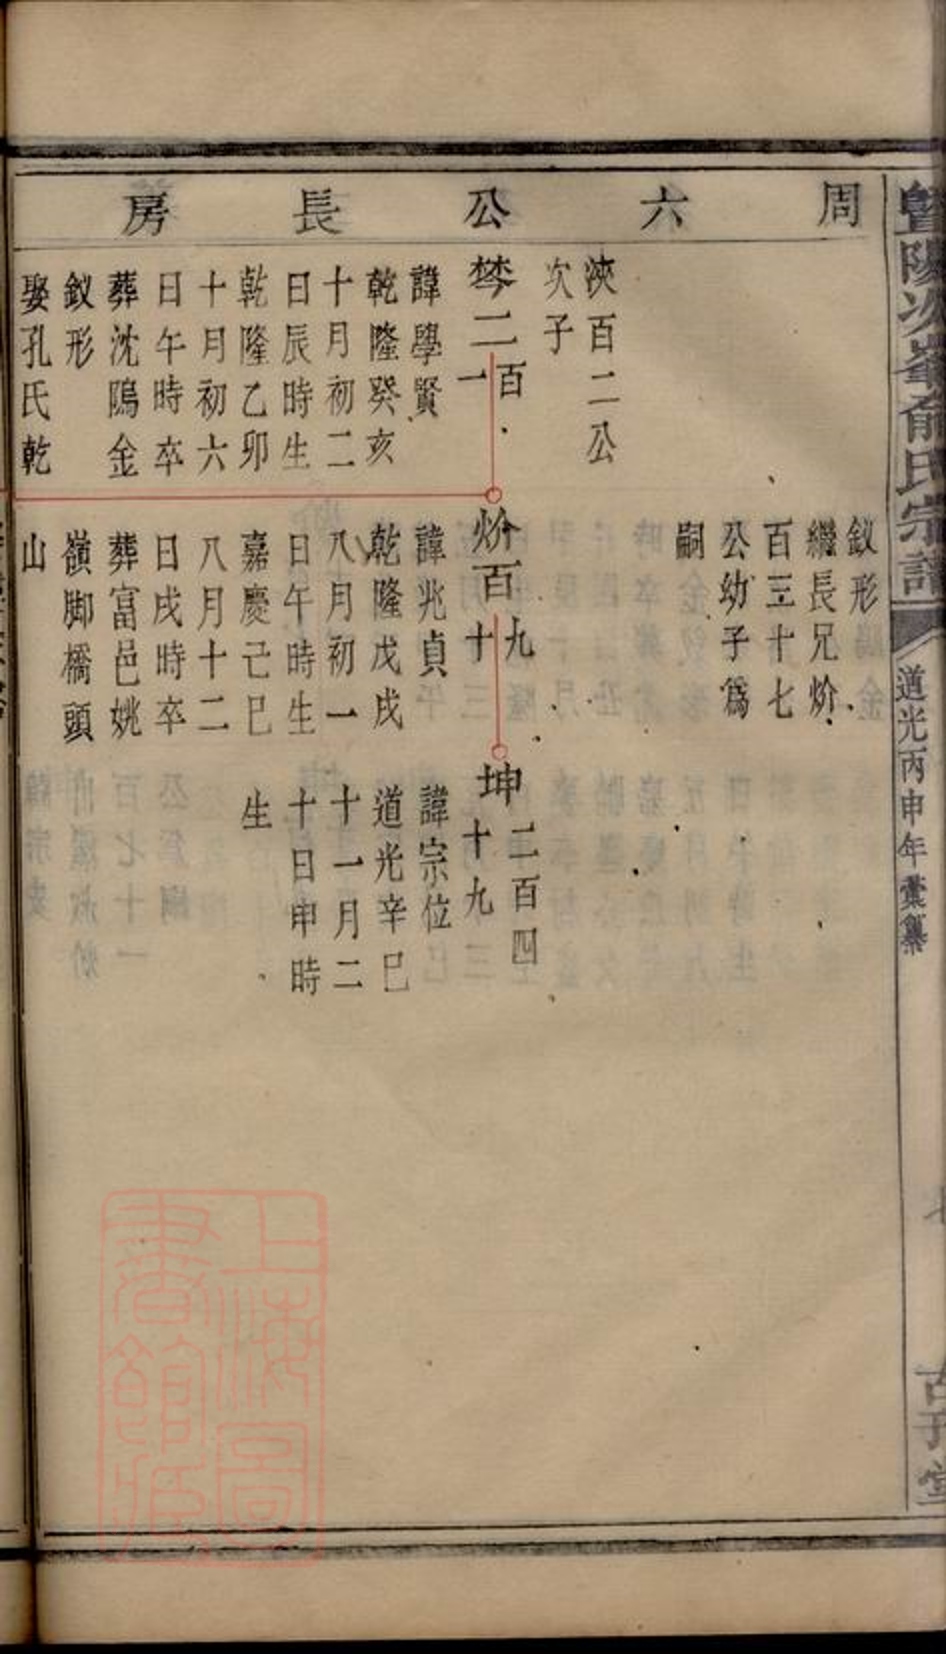 暨陽次峯俞氏宗譜
道光丙申年彙纂
周六公長房
釵形
繼長兄炌
百三十七
公幼子爲
嗣
浹百二公
次子
棽二百一
諱學賢
乾隆癸亥
十月初二
日辰時生
乾隆乙卯
十月初六
日午時卒
葬沈鴎金
釵形
娶孔氏乾
炌百九十
諱兆貞
乾隆戊戌
八月初一
日午時生
嘉慶己巳
八月十二
日戌時卒
葬富邑姚
嶺脚橋頭
山
坤二百四十九
諱宗位
道光辛巳
十一月二
十日申時
生
上海圖書館藏